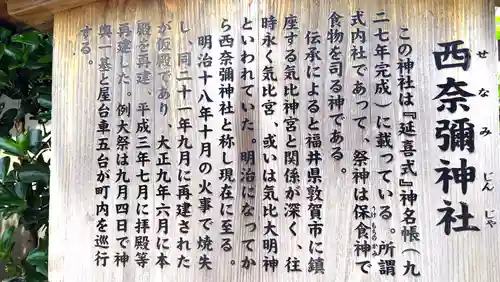 西奈彌神社
せなみじんじゃ
この神社は『延喜式』神名帳（九
二七年完成）に載っている。所謂
式内社であって、祭神は保食神で
うけもちのかみ
食物を司る神である。
伝承によると福井県敦賀市に鎮
座する気比神宮と関係が深く、往
時永く気比宮、或いは気比大明神
といわれていた。明治になってか
ら西奈彌神社と称し現在に至る。
明治十八年十月の火事で焼失
し、同二十一年九月に再建された
が仮殿であり、大正九年六月に本
殿を再建、平成三年七月に拝殿等
再建した。例大祭は九月四日で神
輿一基と屋台車五台が町内を巡行
する。